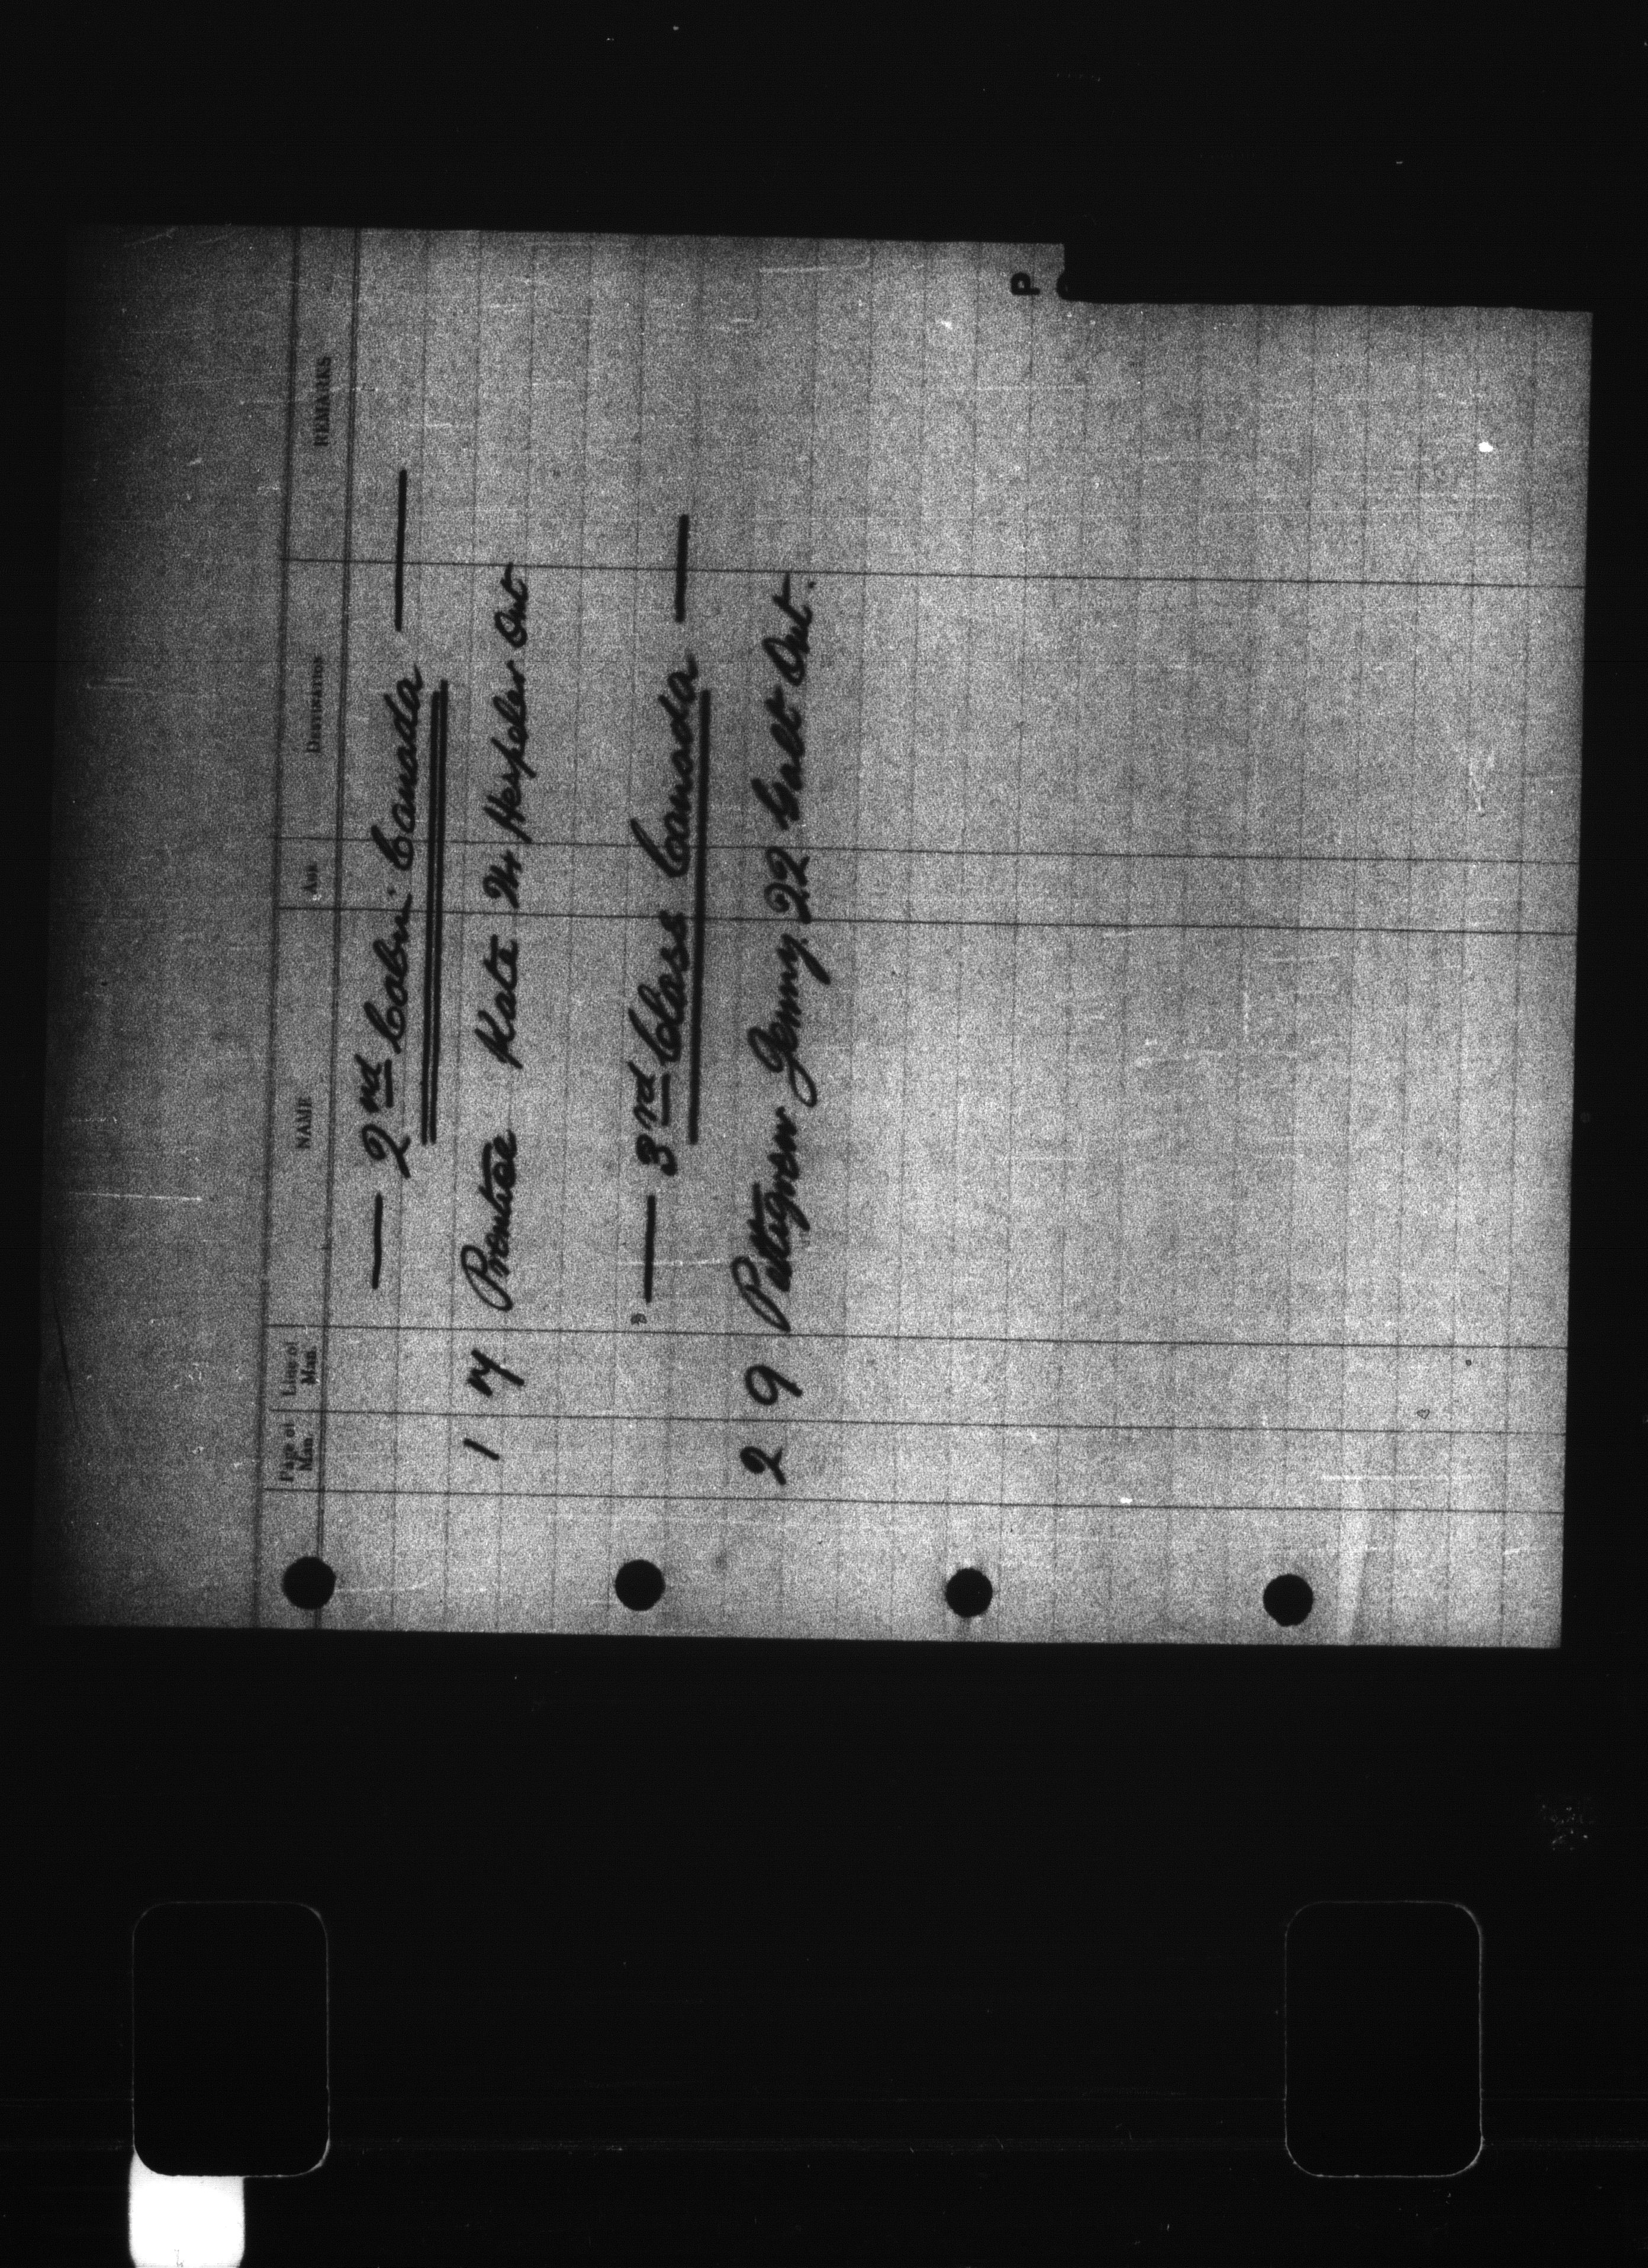 Page of Man. Line of Man. NAME AGE DESTINATION REMARKS
— 2nd Cabin Canada —
1 7 Prentice Kate 24 Hespeler Ont
— 3rd Class Canada —
2 9 Pettigrew Jenny 22 Galt Ont.
P